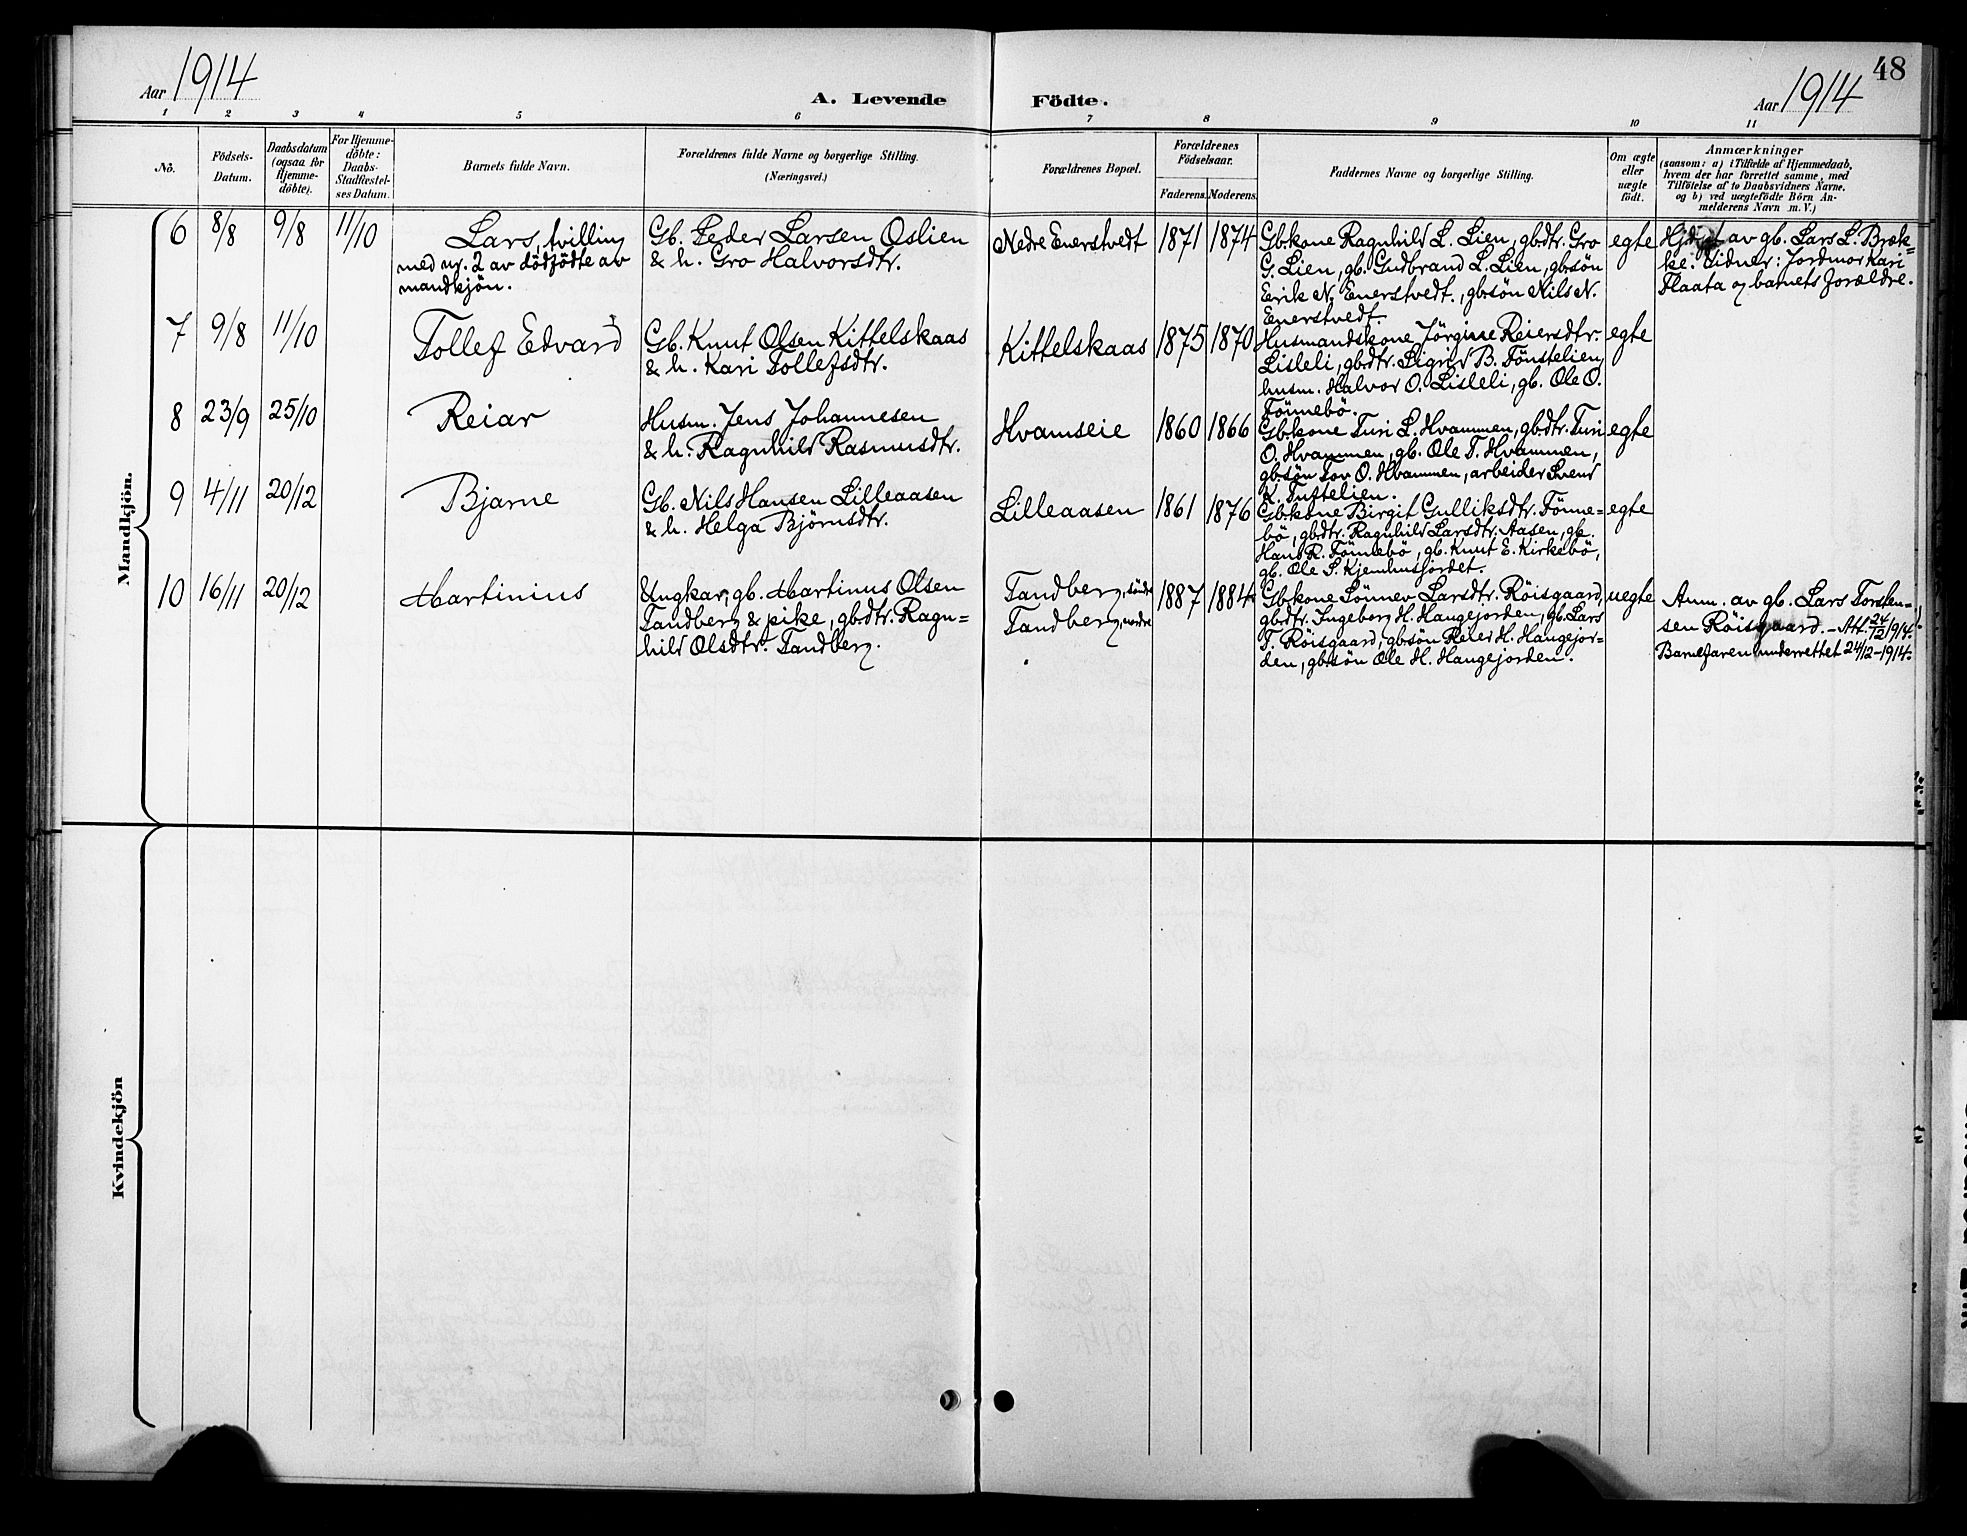 48
Aar 1914
A. Levende Födte.
Aar 1914
1 2 3 4 5 6 7 8 9 10 11
No.
Födsels-
Datum.
Daabsdatum
(ogsaa for
Hjemme-
döbte).
For Hjemme-
döbte:
Daabs-
Stadfæstel-
ses Datum.
Barnets fulde Navn.
Forældrenes fulde Navne og borgerlige Stilling.
(Næringsvei.)
Forældrenes Bopæl.
Forældrenes
Födselsaar.
Faderens. Moderens.
Faddernes Navne og borgerlige Stilling.
Om ægte
eller
uægte
födt.
Anmærkninger
(saasom: a) i Tilfælde af Hjemmedaab,
hvem der har forrettet samme, med
Tilföielse af to Daabsvidners Navne,
og b) ved uægtefödte Börn An-
melderens Navn m. V.)
Mandkjön.
6 8/8 9/8 11/10
Lars, tvilling
med nr. 2 av dödfödte av
mandkjön.
Gb. Peder Larsen Oslien
& h. Gro Halvorsdtr.
Nedre Enerstvedt
1871 1874
Gb.kone Ragnhild L. Lien, gb.dtr. Gro
G. Lien, gb. Gudbrand L. Lien, gb.sön
Erik N. Enerstvedt., gb.sön Nils N.
Enerstvedt.
egte
av gb. Lars L. Bræk-
ke. Vidner: Jordmor Kari
Flaata og barnets forældre.
7 9/8 11/10
Tollef Edvard
Gb. Knut Olsen Kittelskaas
& h. Kari Tollefsdtr.
Kittelskaas
1875 1870
Husmandskone Jörgine Reiersdtr.
Lisleli, gb.dtr. Sigrid B. Fönstelien,
husm. Halvor O. Lisleli, gb. Ole O.
Fönnebö.
egte
8 23/9 25/10
Reiar
Husm. Jens Johannesen
& h. Ragnhild Rasmusdtr.
Hvamseie
1860 1866
Gb.kone Turi L. Hvammen, gb.dtr. Turi
O. Hvammen, gb. Ole T. Hvammen,
gb.sön Tov O. Hvammen, arbeider Svend
K. Tuftelien.
egte
9 4/11 20/12
Bjarne
Gb. Nils Hansen Lilleaasen
& h. Helga Björnsdtr.
Lilleaasen
1861 1876
Gb.kone Birgit Gulliksdtr. Fönne-
bö, gb.dtr. Ragnhild Larsdtr. Aasen, gb.
Hans R. Fönnebö, gb. Knut E. Kirkebö,
gb. Ole S. Kjemhusjordet.
egte
10 16/11 20/12
Martinius
Ungkar, gb. Martinus Olsen
Tandberg & pike, gb.dtr. Ragn-
hild Olsdtr. Tandberg.
Tandberg, söndre
Tandberg, nordre
1887 1884
Gb.kone Sönnev Larsdtr. Röisgaard,
gb.dtr. Ingeborg H. Haugejorden, gb. Lars
T. Röisgaard, gb.sön Reier H. Haugejor-
den, gb.sön Ole H. Haugejorden.
uegte
Anm. av gb. Lars Torsten-
sen Röisgaard. – Att. 24/12 1914.
Barnefaren underrettet 24/12–1914.
Kvindekjön